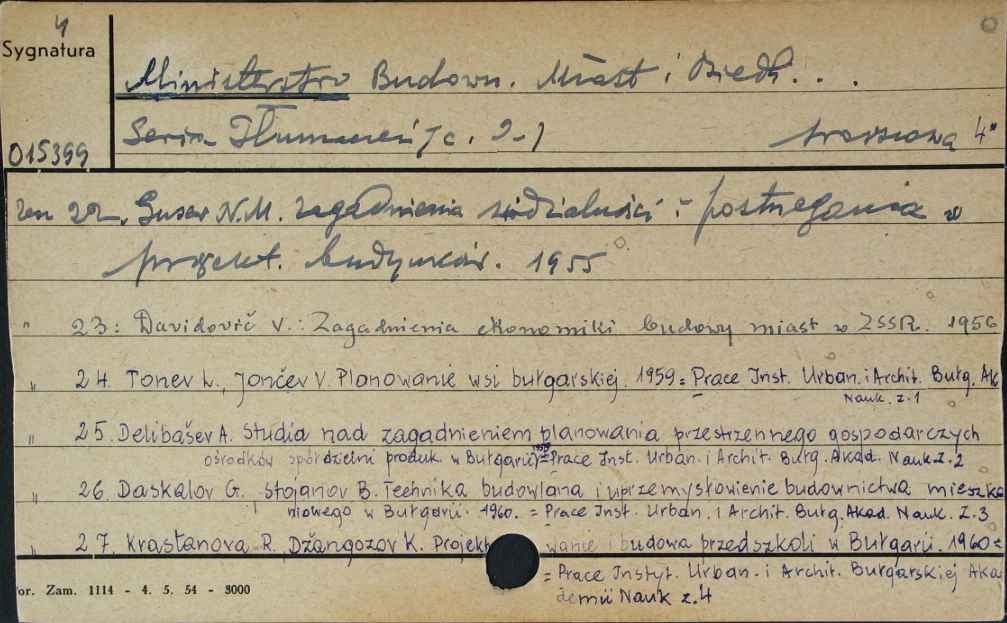 4
Sygnatura
Ministerstwo Budown. Miast i Osiedli . . .
015399
Seria Tłumaczeń Jc. 2-1 Warszawa 4°
Zesz 22. Gusev N.M. Zagadnienia widzialności i postrzegania w
projekt. budynków. 1955
" 23: Davidovič V.: Zagadnienia ekonomiki budowy miast w ZSSR. 1956
" 24. Tonev L., Jončev V. Planowanie wsi bułgarskiej. 1959 = Prace Inst. Urban. i Archit. Bułg. Ak
Nauk. z.1
" 25. Delibašev A. Studia nad zagadnieniem planowania przestrzennego gospodarczych
ośrodków spółdzielni produk. w Bułgarii = Prace Inst. Urban. i Archit. Bułg. Akad. Nauk. z. 2
" 26. Daskalov G. Stojanov B. Technika budowlana i uprzemysłowienie budownictwa mieszka
niowego w Bułgarii. 1960. = Prace Inst. Urban. i Archit. Bułg. Akad. Nauk. Z. 3
" 27. Krastanova R. Džangozov K. Projekt wanie i budowa przedszkoli w Bułgarii. 1960 =
= Prace Instyt. Urban. i Archit. Bułgarskiej Aka
demii Nauk z. 4
or. Zam. 1114 - 4. 5. 54 - 3000